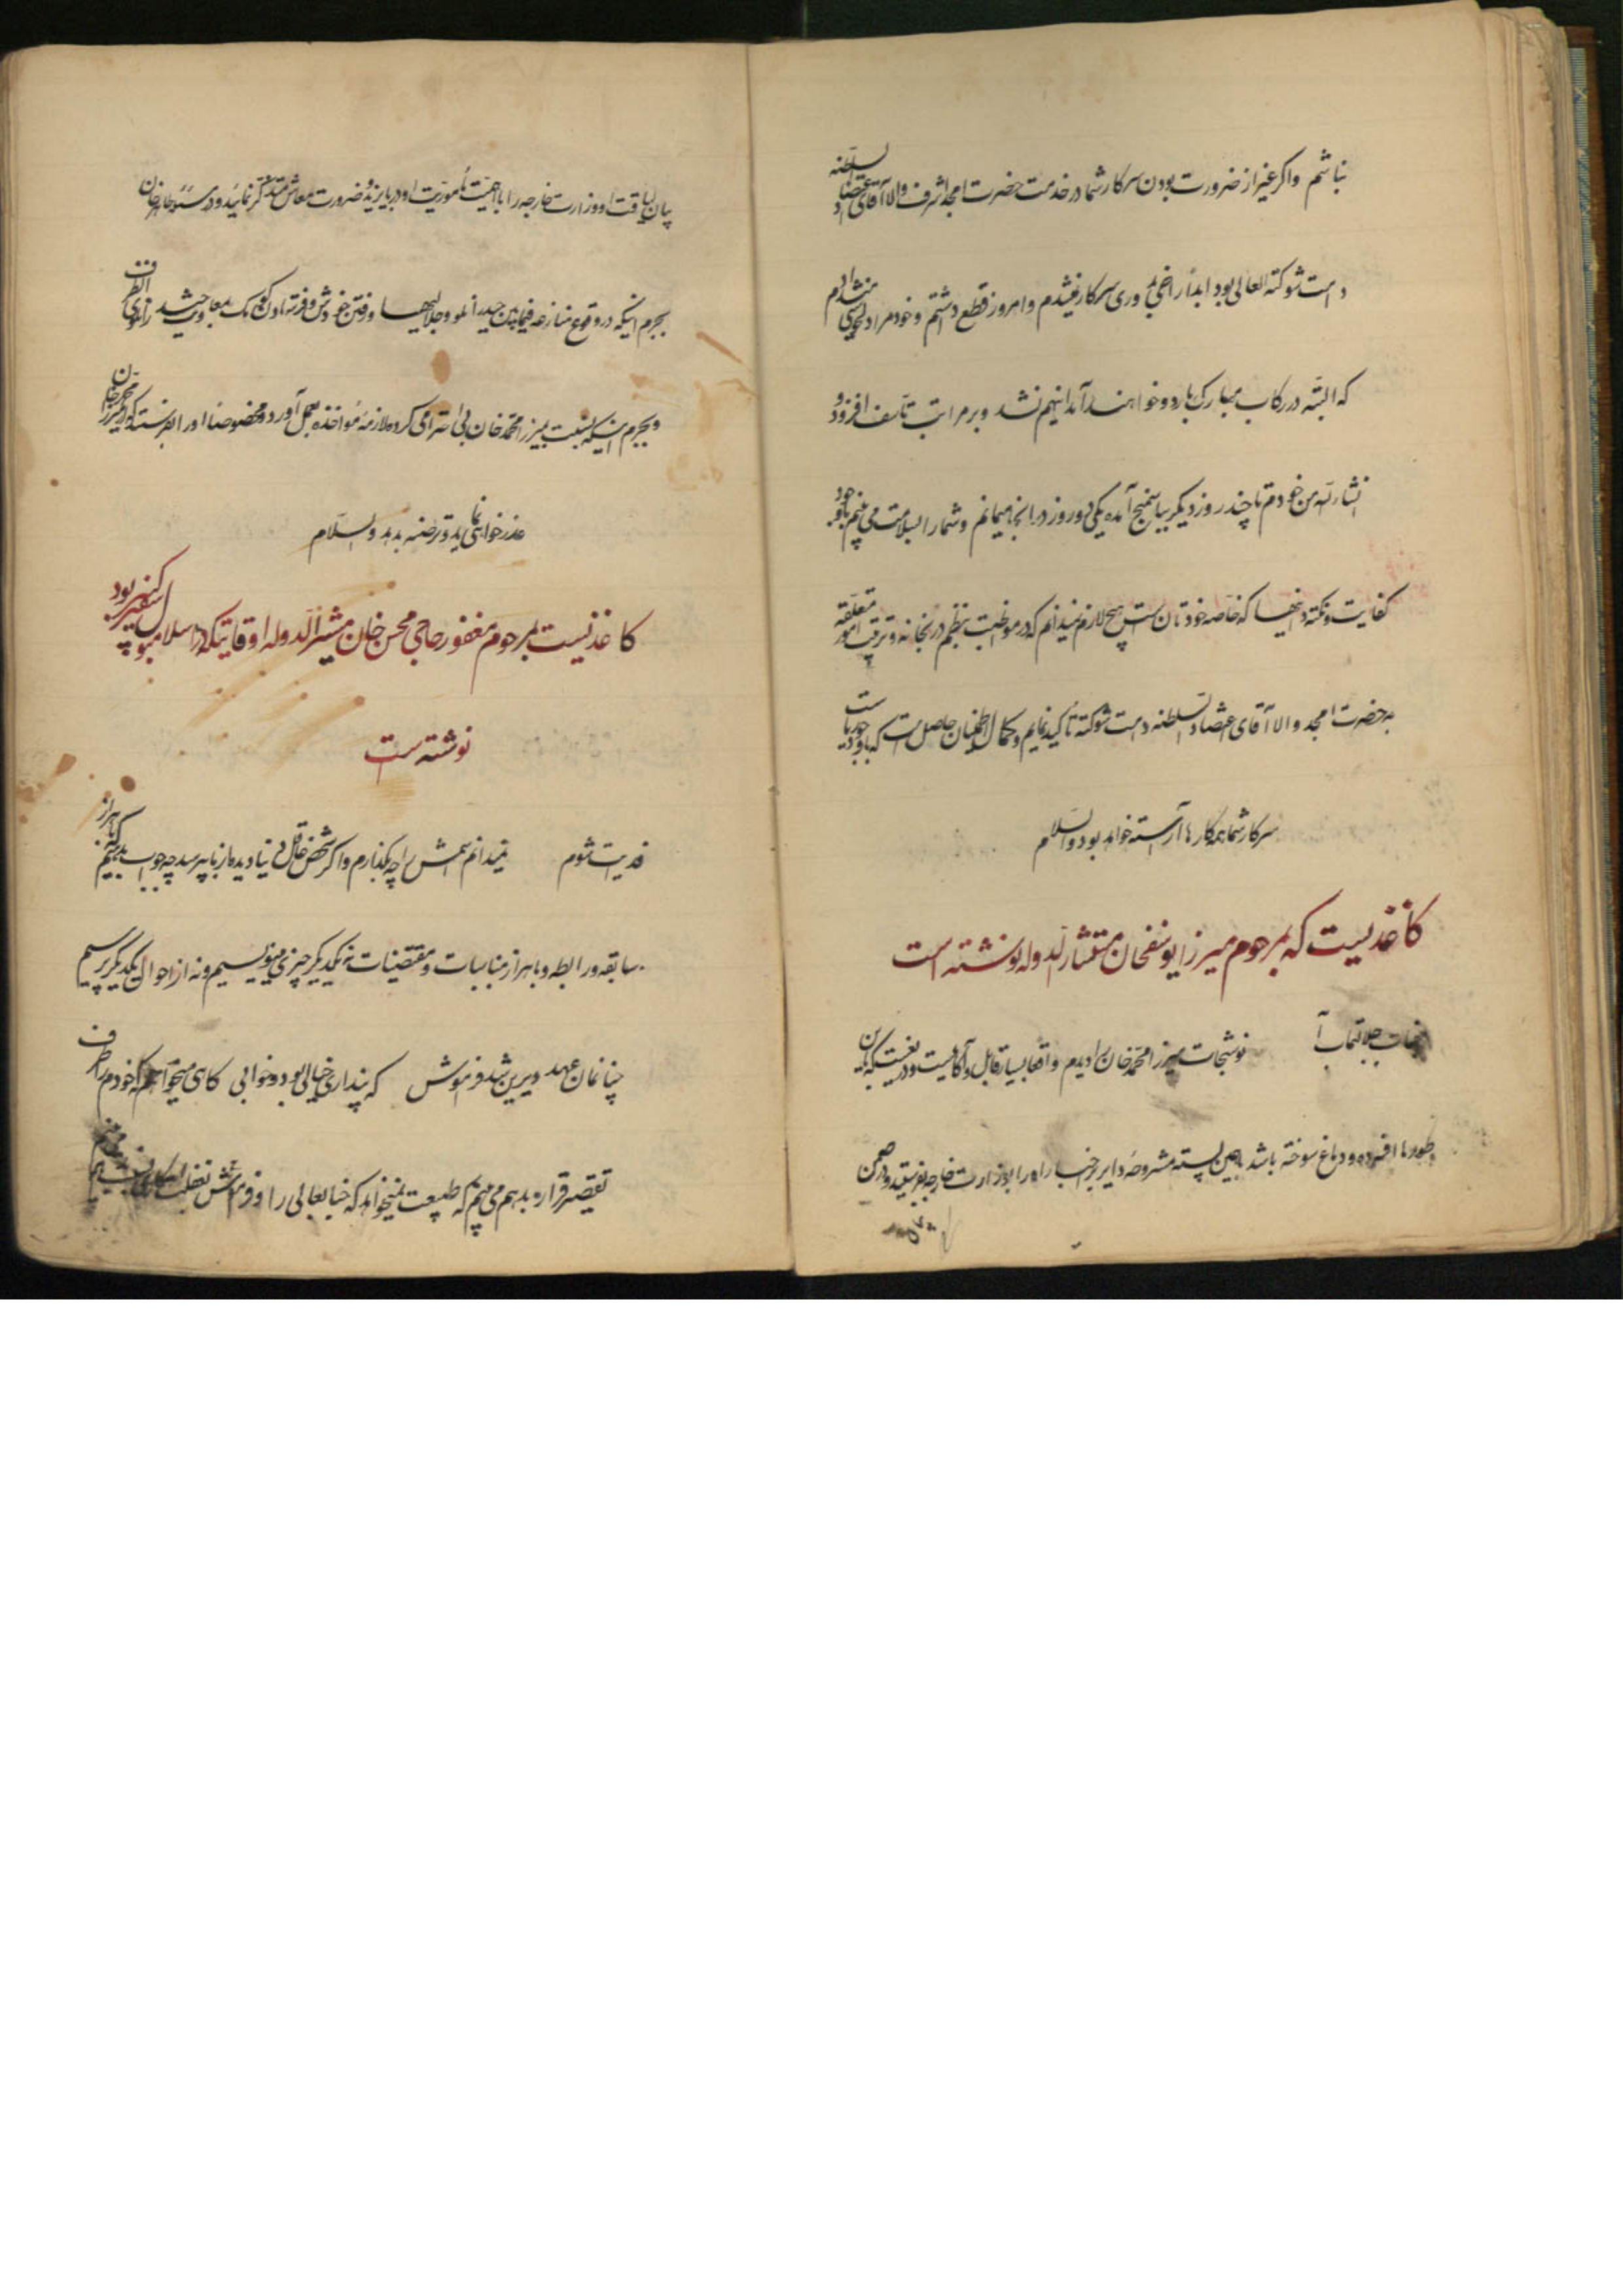 نباشم واکر غیر از ضرورت بودن سرکار شما در خدمت حضرت امجد اشرف والا آقای اعتضاد السلطنه
دامت شوکته العالی بود ابدا راضی بدوری سرکار نمیشدم و امروز قطع داشتم و خودم را
که البته در رکاب مبارک باردو خواهند آمد اینهم نشد و بر مراتب تاسف افزود و
انشاءالله من خودم تا چند روز دیکر بیاسمنج آمده یکی دو روز در انجا میمانم و شما را بسلامت می بینم با وجود
کفایت و نکته دانیها که خاصه خودتان است هیچ لازم نمیدانم که در مواظبت بنظم دربخانه و ترتیب امور متعلقه
به حضرت امجد والا آقای اعتضاد السلطنه دامت شوکته تاکید نمایم و کمال اطمینان حاصل است که با وجود
سرکار شما همه کارها آراسته خواهد بود والسلام
کاغذیست که بمرحوم میرزا یوسفخان مستشار الدوله نوشته است
نوشتجات میرزا محمد خان را دیدم واقعا بسیار قابل و آکاهست و دریغست که باین
طورها افسرده و دماغ سوخته باشد با همین پسته مشروحه دایر بر اخبار او را بوزارت خارجه بفرستید و در ضمن
بیان لیاقت او وزارت خارجه را با اهمیت مأموریت او در بایزید و ضرورت معاش متذکر نمائید و
بجرم اینکه در وقوع منازعه فیمابین حیدرانلو و جلالیها و رفتن خودش و فرستادن کومک
و بجرم اینکه نسبت بمیرزا محمد خان بی احترامی کرده لازمه مؤاخذه بعمل آورد و مخصوصا او را بفرستد که از میرزا محمد خان
عذرخواهی نماید و ترضیه بدهد والسلام
کاغذیست بمرحوم مغفور حاجی محسن خان مشیرالدوله اوقاتیکه در اسلامبول سفیر کبیر بود
نوشته است
فدیت شوم نمیدانم اسمش را چه بکذارم و اکر شخص عاقل دنیا دیده از ما بپرسد چه جواب بدهیم که با هزار
سابقه و رابطه و با هزار مناسبات و مقتضیات نه بیکدیکر چیزی مینویسیم و نه از احوال یکدیکر میپرسیم
چنانمان عهد دیرین شد فراموش که پنداری خیالی بود و خوابی کاهی میخواهم که خودم را طرف
تقصیر قرار بدهم می بینم که طبیعت نمیخواهد که جنابعالی را